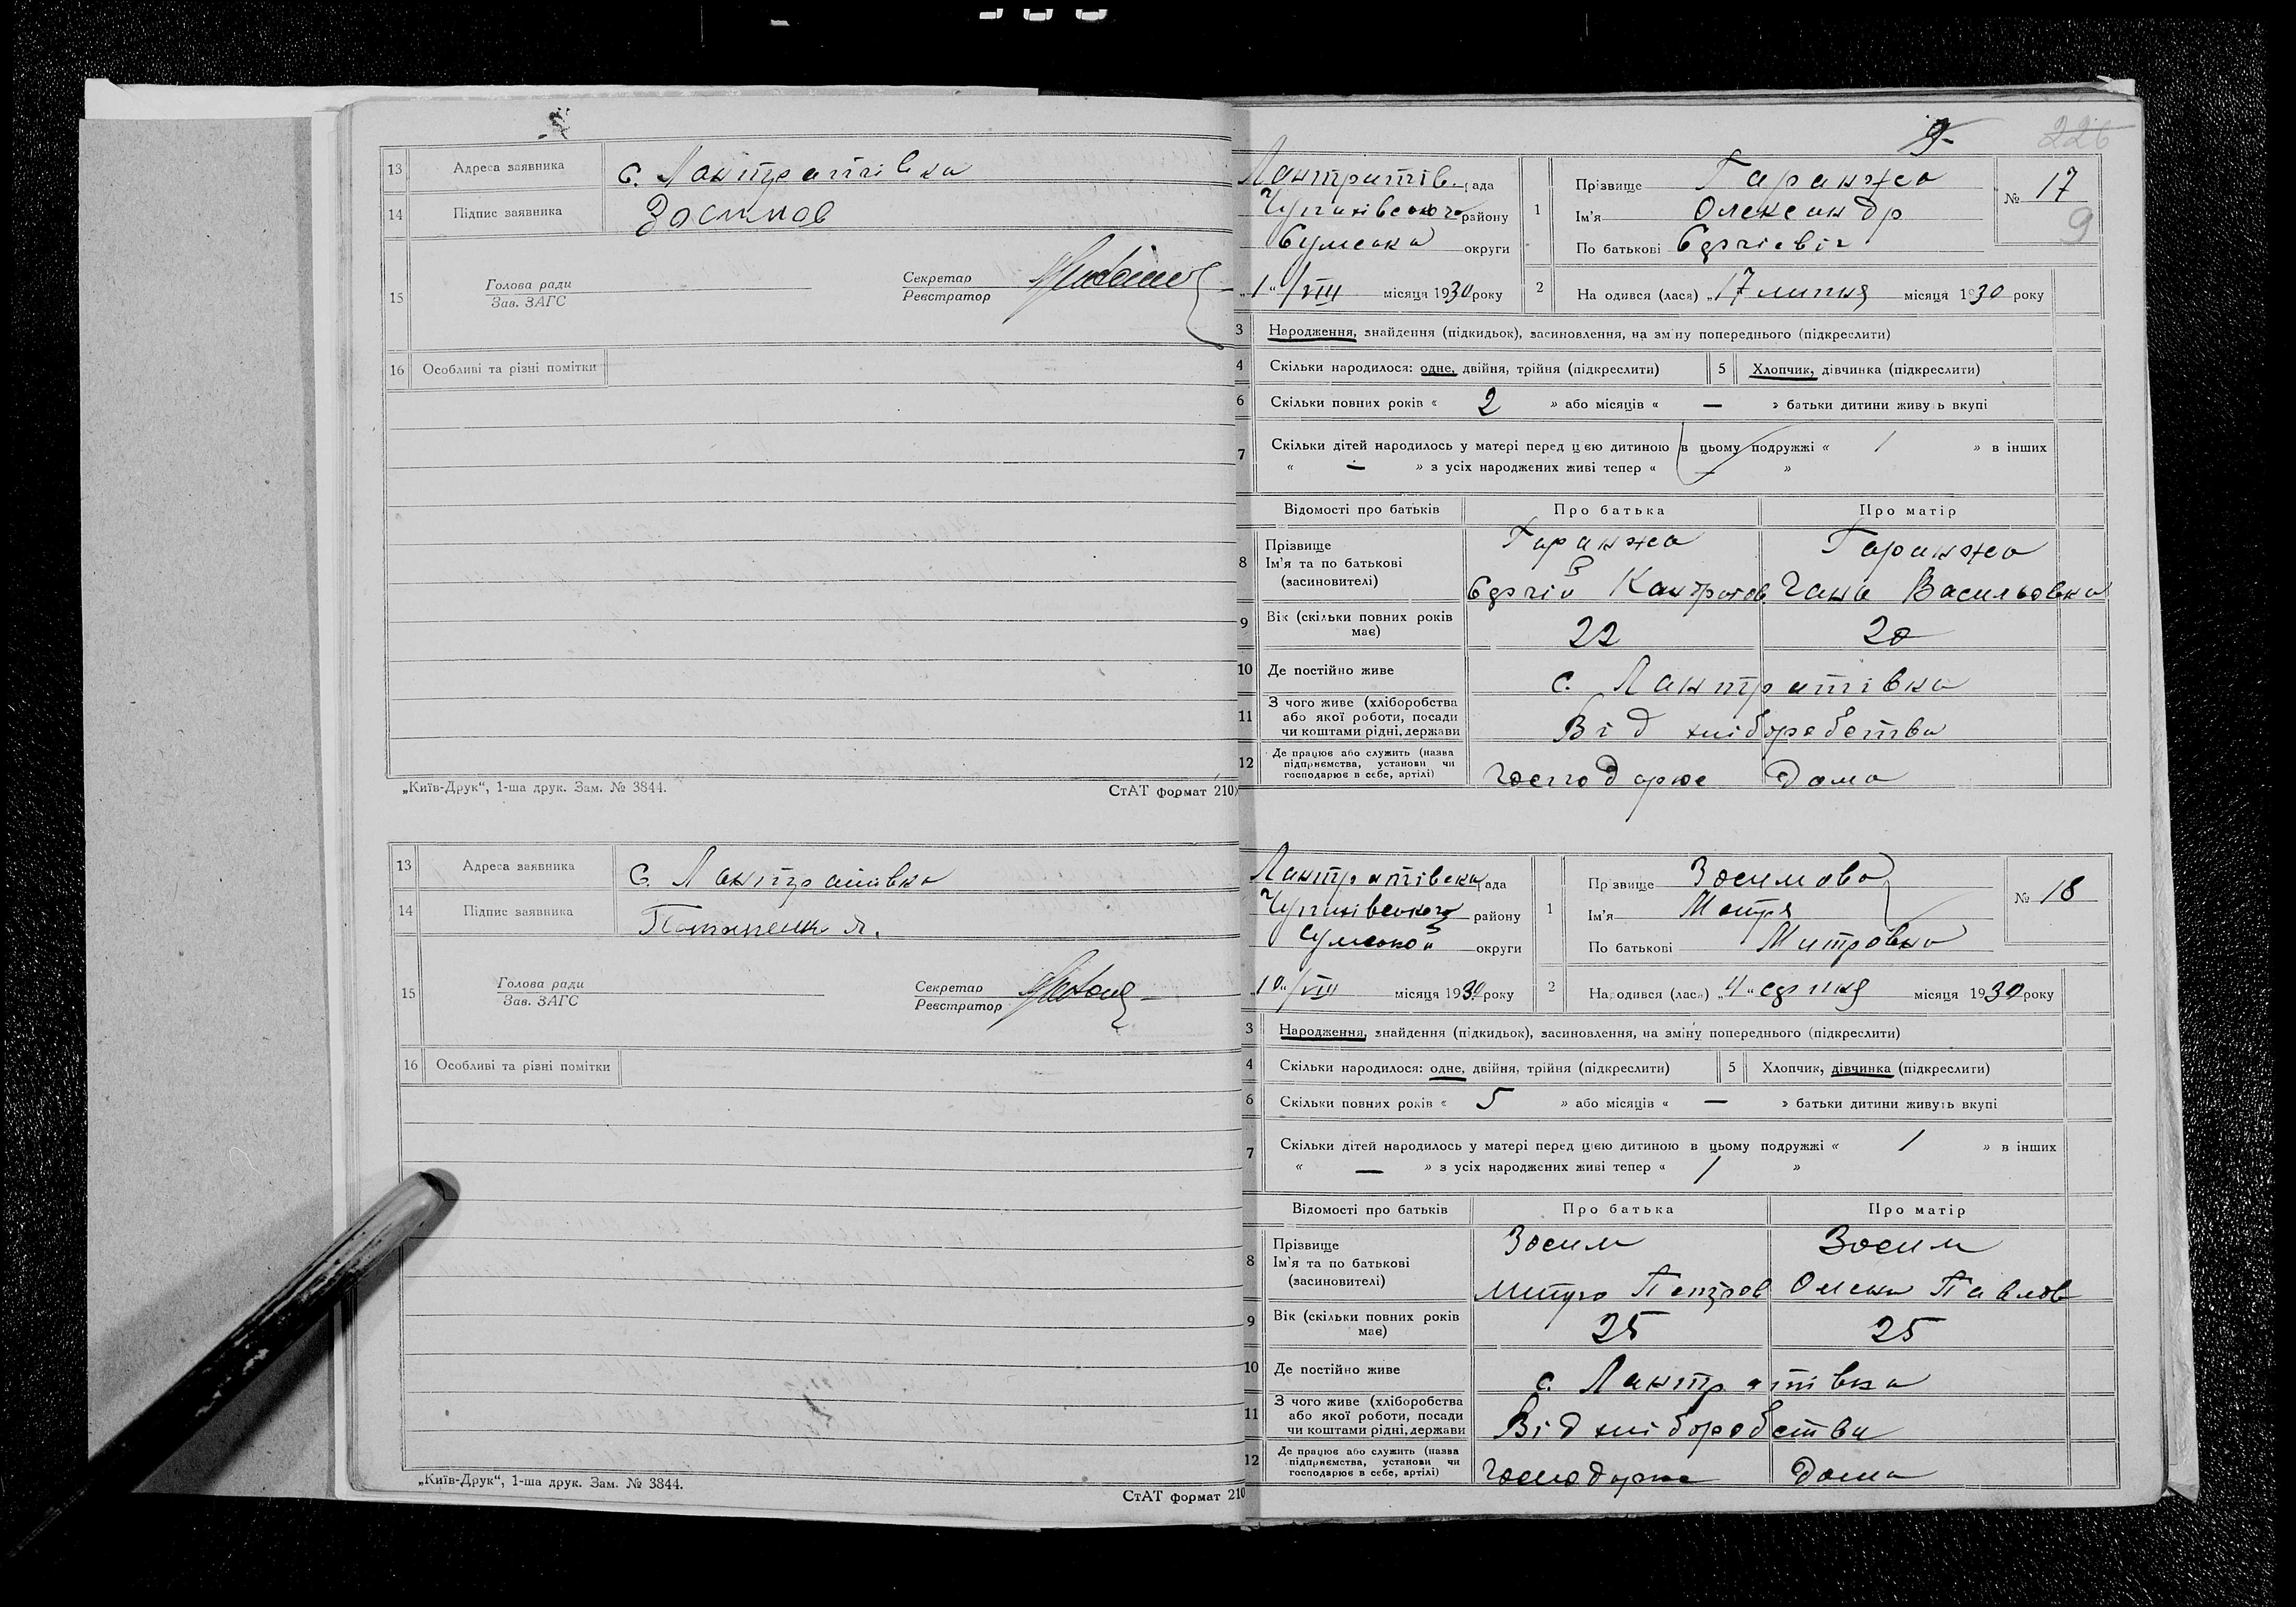 13 Адреса заявника с. Лантратівка
14 Підпис заявника Зосимов
15 Голова ради
Зав. ЗАГС
Секретар
Реєстратор
16 Особливі та різні помітки
„Київ-Друк“, 1-ша друк. Зам. № 3844. СтАТ формат 210
13 Адреса заявника с. Лантратівка
14 Підпис заявника
15 Голова ради
Зав. ЗАГС
Секретар
Реєстратор
16 Особливі та різні помітки
„Київ-Друк“, 1-ша друк. Зам. № 3844.
СтАТ формат 210
9
226
Лантратів. рада
району
Сумська округи
„1“/VIII місяця 1930 року
1 Прізвище Гаранжа
Ім'я Олександр
По батькові
№ 17
9
2 На одився (лася) „17 липня місяця 1930 року
3 Народження, знайдення (підкидьок), засиновлення, на зміну попереднього (підкреслити)
4 Скільки народилося: одне, двійня, трійня (підкреслити) 5 Хлопчик, дівчинка (підкреслити)
6 Скільки повних років « 2 » або місяців « — » батьки дитини живуть вкупі
7 Скільки дітей народилось у матері перед цією дитиною в цьому подружжі « 1 » в інших
« — » з усіх народжених живі тепер « — »
Відомості про батьків Про батька Про матір
8 Прізвище Гаранжа Гаранжа
Ім'я та по батькові
(засиновителі) Кантратов. Гана Васильовна
9 Вік (скільки повних років
має) 22 20
10 Де постійно живе с. Лантратівка
11 З чого живе (хліборобства
або якої роботи, посади
чи коштами рідні, держави Від хліборобства
12 Де працює або служить (назва
підприємства, установи чи
господарює в себе, артілі) Господарює Дома
Лантратівська рада
району
Сумської округи
„10“/VIII місяця 1930 року
1 Пр звище Зосимова
Ім'я Мотря
По батькові Митровна
№ 18
2 Народився (лася) „4“ серпня місяця 1930 року
3 Народження, знайдення (підкидьок), засиновлення, на зміну попереднього (підкреслити)
4 Скільки народилося: одне, двійня, трійня (підкреслити) 5 Хлопчик, дівчинка (підкреслити)
6 Скільки повних років « 5 » або місяців « — » батьки дитини живуть вкупі
7 Скільки дітей народилось у матері перед цією дитиною в цьому подружжі « 1 » в інших
« — » з усіх народжених живі тепер « 1 »
Відомості про батьків Про батька Про матір
8 Прізвище Зосим Зосим
Ім'я та по батькові
(засиновителі) Митро Петров Олена Павлов
9 Вік (скільки повних років
має) 25 25
10 Де постійно живе с. Лантратівка
11 З чого живе (хліборобства
або якої роботи, посади
чи коштами рідні, держави Від хліборобства
12 Де працює або служить (назва
підприємства, установи чи
господарює в себе, артілі) Господарює Дома